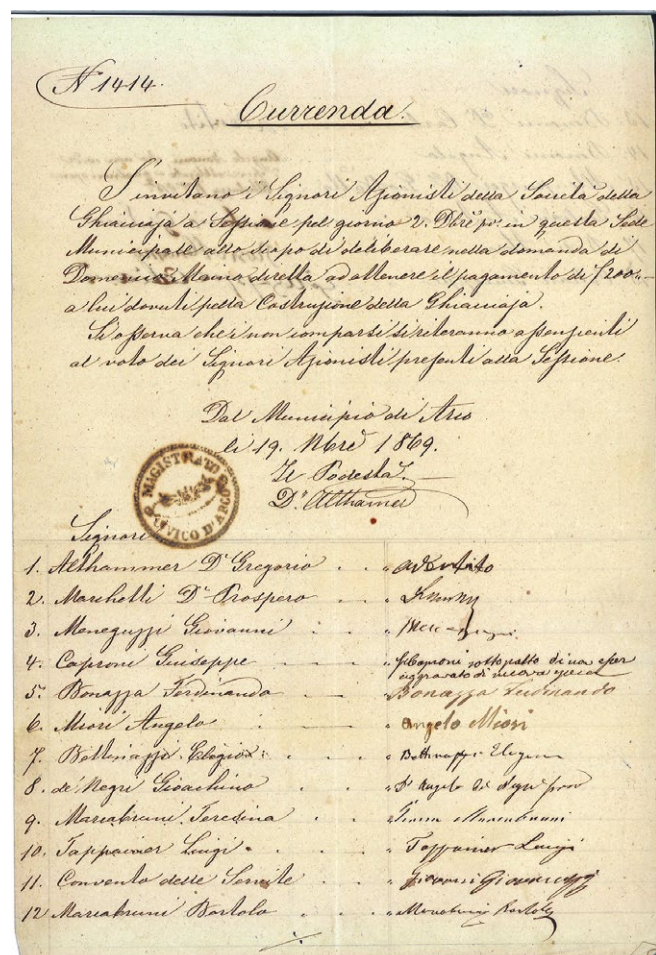 N 1414.
Currenda.
S'invitano i Signori Azionisti della Società della
Ghiacciaja a Sessione pel giorno 2. Dbre in questa Sede
Municipale allo scopo di deliberare nella domanda di
Domenico Maino diretta ad ottenere il pagamento di f 200
a lui dovuti pella Costruzione della Ghiacciaja.
Si osserva che i non comparsi si riteranno assenzienti
al voto dei Signori Azionisti presenti alla Sessione.
Dal Municipio di Arco
li 19. Nbre 1869.
Il Podestà
Dr. Althamer
MAGISTRATO CIVICO D'ARCO
Signori
1. Althammer Dr Gregorio
2. Marchetti Dr Prospero
3. Meneguzzi Giovanni
4. Caproni Giuseppe sottopatto di non esser
aggravato di nuova
5. Bonazza Ferdinando Bonazza Ferdinando
6. Miori Angelo Angelo Miori
7. Bottinazzi Eligio
8. de' Negri Gioachino
9. Mariabruni Teresina
10. Tappainer Luigi Tappainer Luigi
11. Convento delle Servite
12 Mariabruni Bortolo